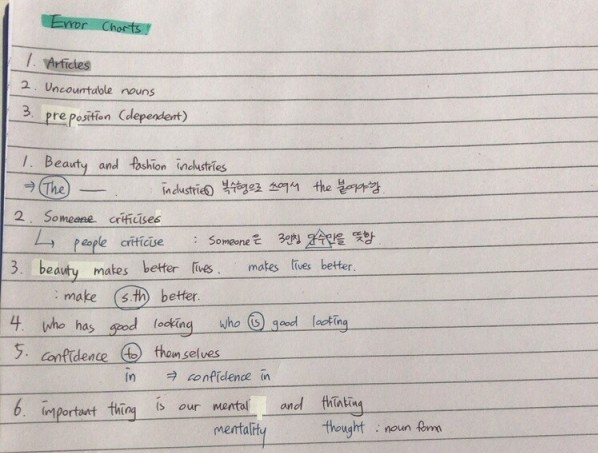 Error Charts
1. Articles
2. Uncountable nouns
3. preposition (dependent)
1. Beauty and fashion industries
⇒ The — . industries 복수형으로 쓰여서 the 붙여야함
2. Someone criticises
↳ people criticise : Someone은 3인칭 단수만을 뜻함
3. beauty makes better lives. makes lives better.
: make s.th better.
4. who has good looking who is good looking
5. confidence to themselves
in ⇒ confidence in
6. important thing is our mental and thinking
mentality thought : noun form